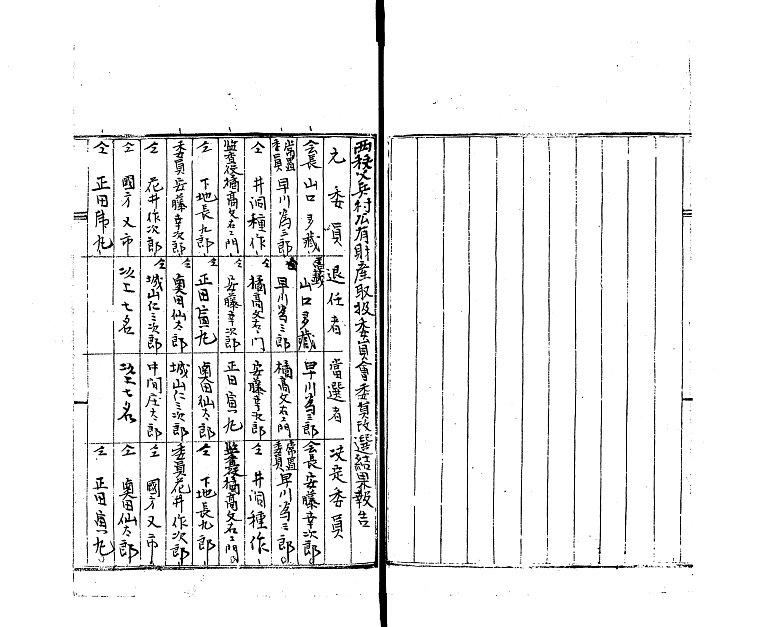 西秩父兵村公有財産取扱委員會委員改選結果報告
元委員 退任者 當選者 決定委員
会長 山口多藏 山口多藏 早川為三郎 会長 安藤幸次郎
常置委員 早川為三郎 早川為三郎 橘高文右エ門 常置委員 早川為三郎
仝 井洞種作 橘高文右エ門 安藤幸次郎 仝 井洞種作
監査役 橘高文右エ門 仝 安藤幸次郎 正田寅九 監査役 橘高文右エ門
仝 下地長九郎 仝 正田寅九 奥田仙太郎 仝 下地長九郎
委員 安藤幸次郎 仝 奥田仙太郎 城山仁三次郎 委員 花井作次郎
仝 花井作次郎 仝 城山仁三次郎 中間庄太郎 仝 國方又市
仝 國方又市 以上七名 以上七名 仝 奥田仙太郎
仝 正田席九 仝 正田寅九